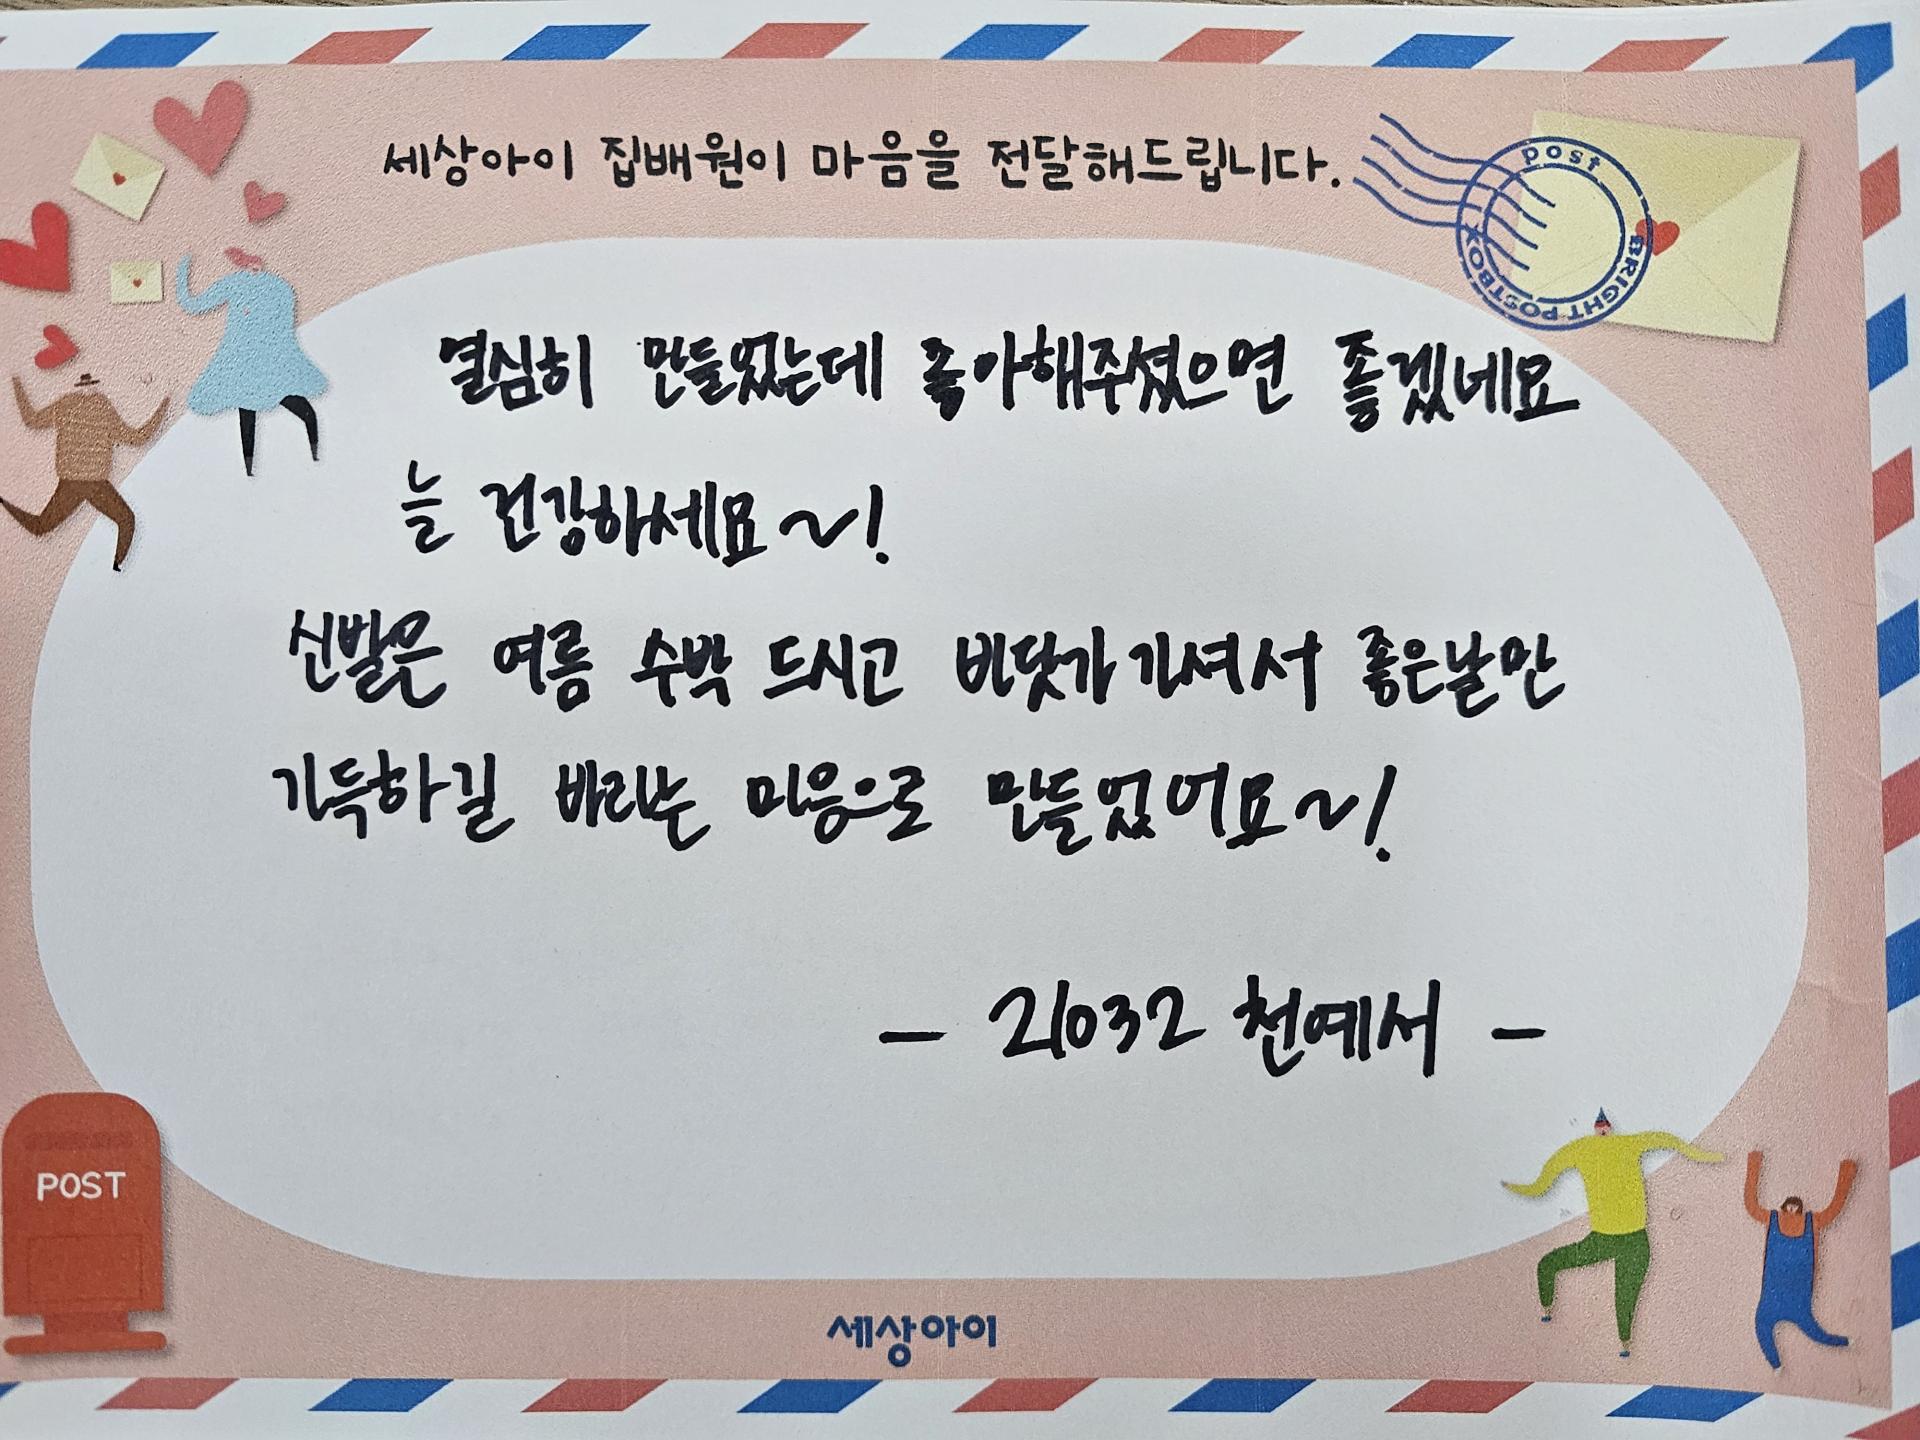 세상아이 집배원이 마음을 전달해드립니다.
post
BRIGHT POSTBOX
열심히 만들었는데 좋아해주셨으면 좋겠네요
늘 건강하세요~!
신발은 여름 수박 드시고 바닷가 가셔서 좋은날만
가득하길 바라는 마음으로 만들었어요~!
- 21032 천예서 -
POST
세상아이